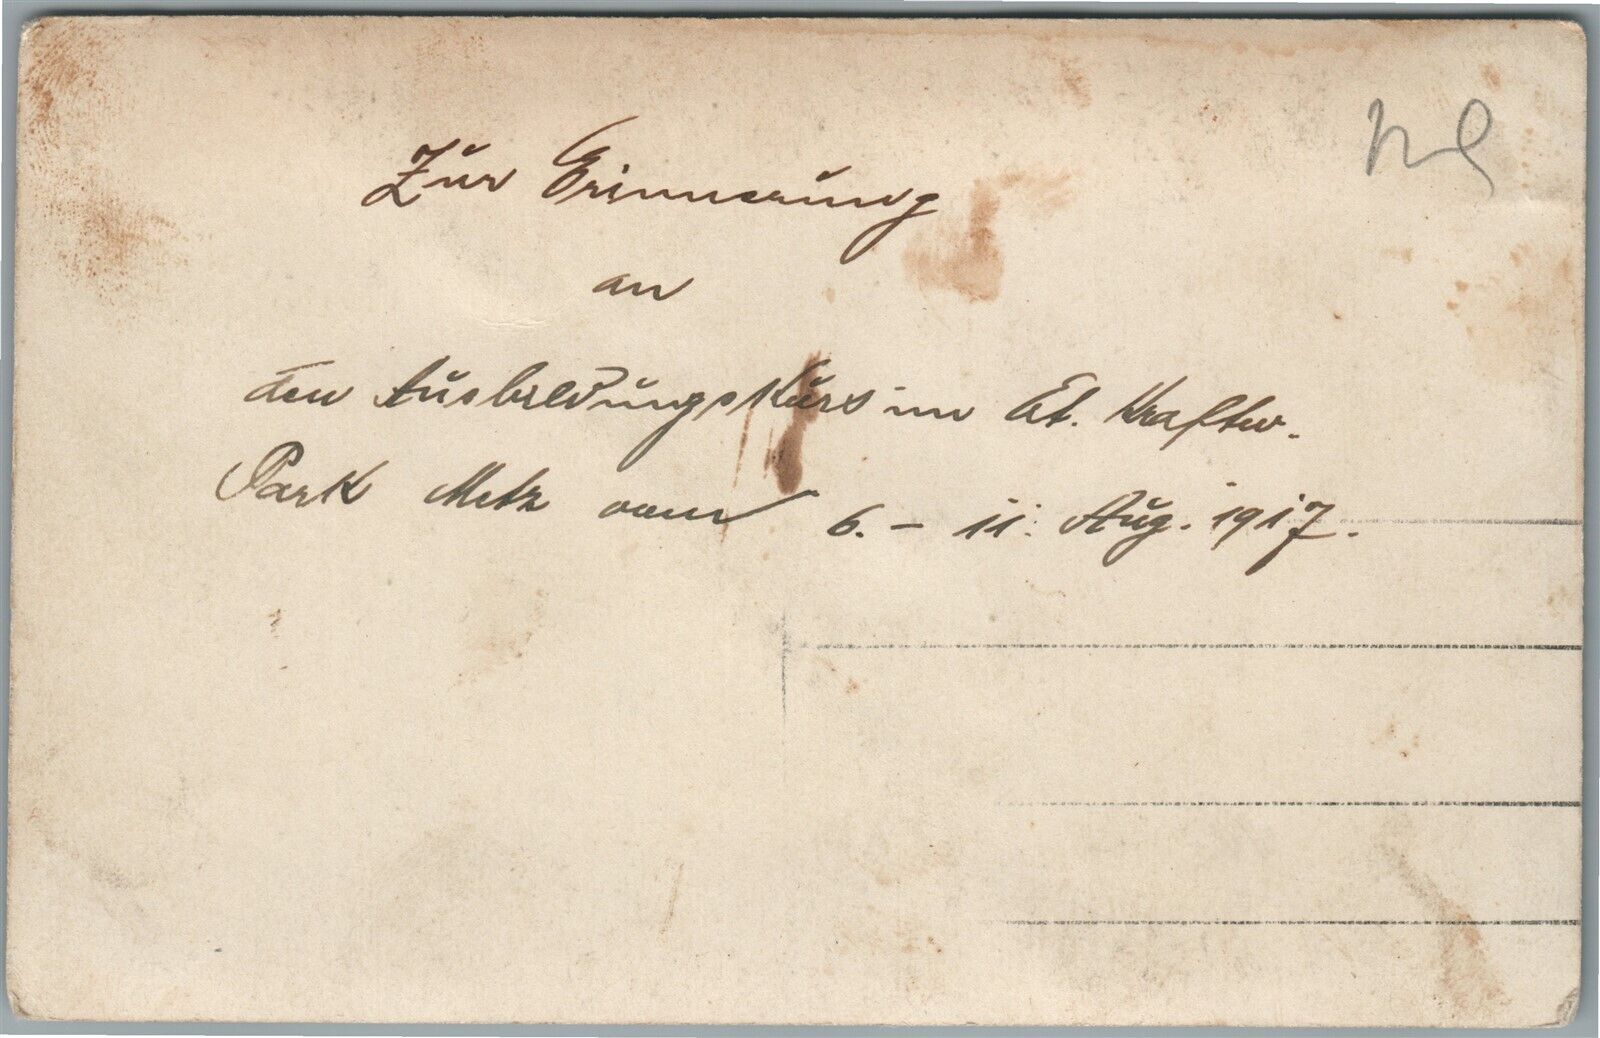 Zur Erinnerung
an
den Ausbildungskurs im Et. Kraftw.
Park Metz vom 6. - 11. Aug. 1917.